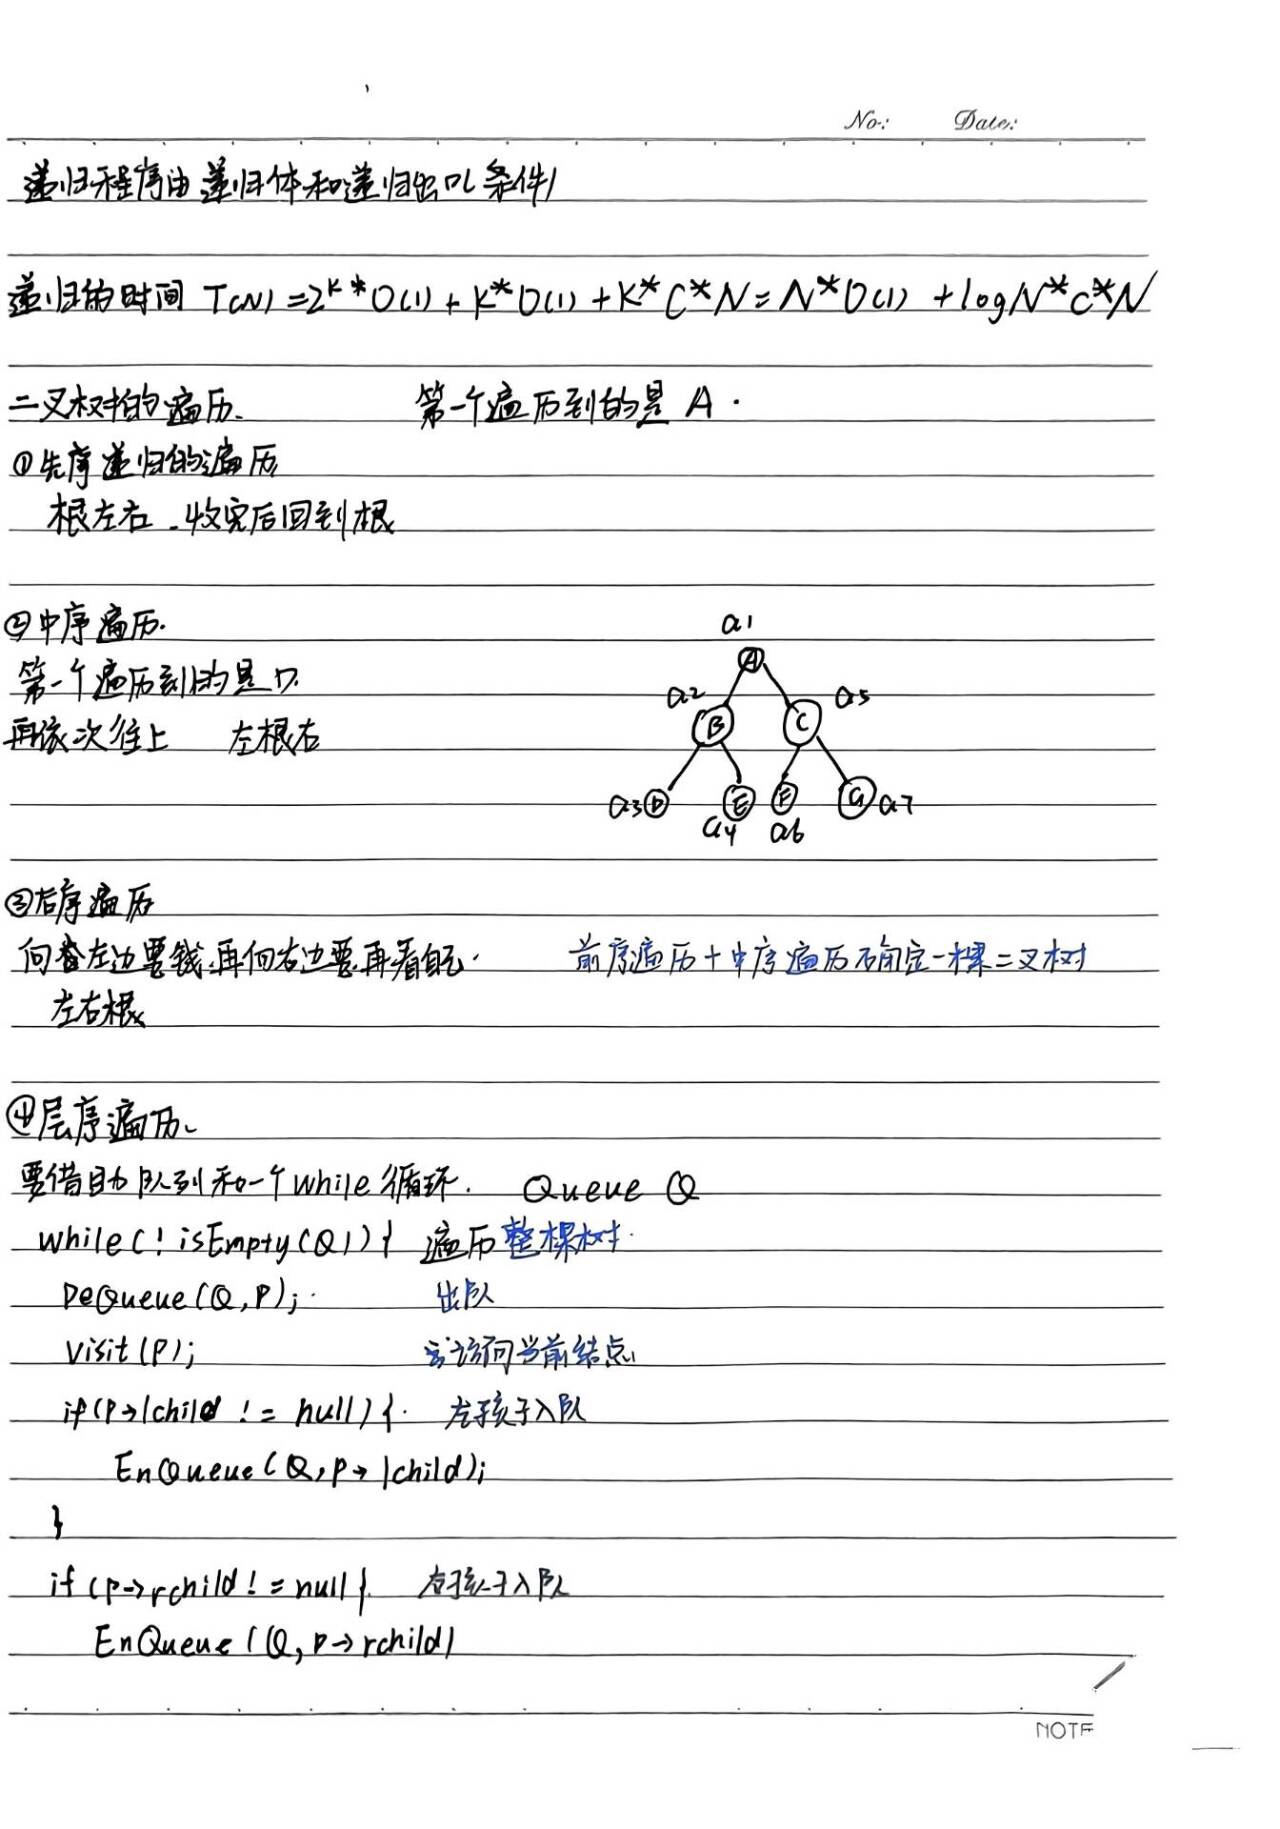 No: Date:
递归程序由递归体和递归出口条件
递归的时间 T(N)=2^K*O(1)+K*O(1)+K*C*N=N*O(1)+logN*C*N
二叉树的遍历. 第一个遍历到的是 A.
①先序递归的遍历
根左右.收完后回到根
②中序遍历.
第一个遍历到的是D.
再依次往上 左根右
a1
A
a2 B C a5
a3 D E F G a7
a4 a6
③后序遍历
向左边要钱.再向右边要再看自己.
前序遍历+中序遍历确定一棵二叉树
左右根
④层序遍历、
要借助队列和一个while循环. Queue Q
while(!isEmpty(Q)){ 遍历整棵树.
DeQueue(Q,P); 出队
visit(P); 访问当前结点
if(P→lchild != null){ 左孩子入队
EnQueue(Q,P→lchild);
}
if(p→rchild!=null{ 右孩子入队
EnQueue(Q,p→rchild)
NOTE